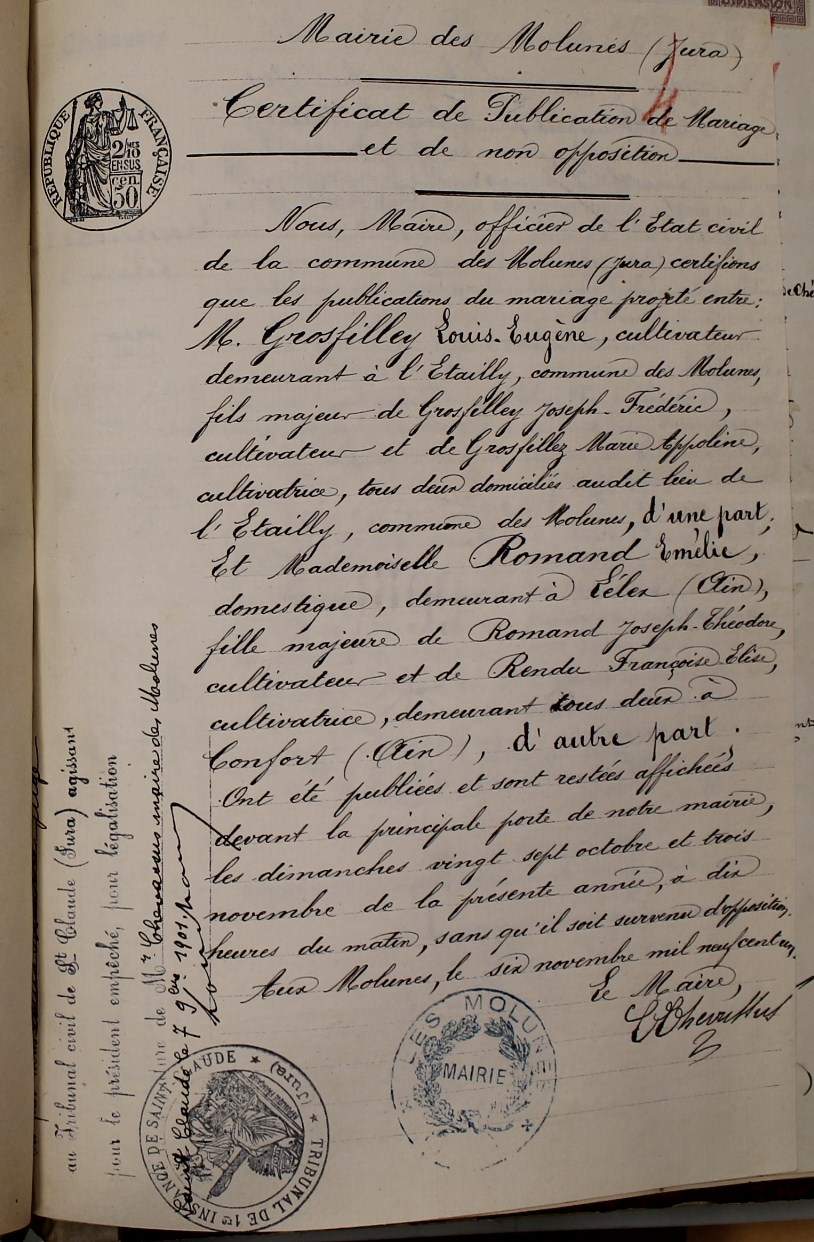 Mairie des Molunes (Jura)
Certificat de Publication de Mariage
et de non opposition
RÉPUBLIQUE FRANÇAISE
Nous, Maire, officier de l'Etat civil
de la commune des Molunes (Jura) certifions
que les publications du mariage projeté entre:
M. Grosfilley Louis-Eugène, cultivateur
demeurant à l'Etailly, commune des Molunes,
fils majeur de Grosfilley Joseph-Frédéric,
cultivateur et de Grosfillez Marie Appoline,
cultivatrice, tous deux domiciliés audit lieu de
l'Etailly, commune des Molunes, d'une part;
Et Mademoiselle Romand Emélie,
domestique, demeurant à Lélex (Ain),
fille majeure de Romand Joseph-Théodore,
cultivateur et de Rendu Françoise Elise,
cultivatrice, demeurant tous deux à
Confort (Ain), d'autre part.
Ont été publiées et sont restées affichées
devant la principale porte de notre mairie,
les dimanches vingt sept octobre et trois
novembre de la présente année, à dix
heures du matin, sans qu'il soit survenu d'opposition.
Aux Molunes, le six novembre mil neuf cent un.
Le Maire,
LES MOLUNES
MAIRIE
au Tribunal civil de St Claude (Jura) agissant
pour le président empêché, pour légalisation
de la signature de Mr. Chevassus maire des Molunes
Saint Claude le 7 9bre 1901
TRIBUNAL DE 1re INSTANCE DE SAINT-CLAUDE (JURA)